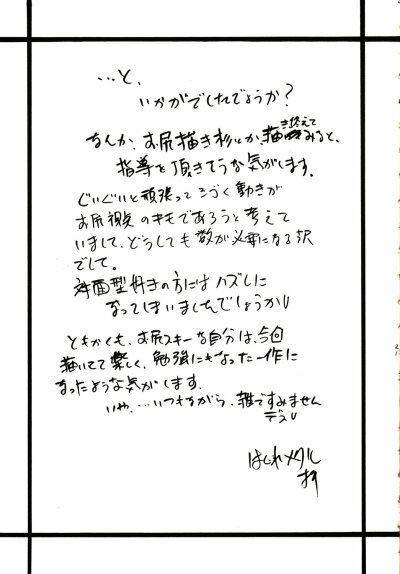 …と、
いかがでしたでしょうか?
なんか、お尻描き杉とか、描き終えてみると、
指導を頂きそうな気がします。
ぐいぐいと頑張って うごく動きが
お尻視点のキモであろうと考えて
いまして、どうしても数が必要になる訳
でした。
対面型好きの方にはハズしに
なってしまいましたでしょうか
ともかくも、お尻スキーな自分は、今回
描いてて楽しく、勉強にもなった一作に
なったような気がします。
いや、…いつもながら、雑ですみません
デス
はしれメタル